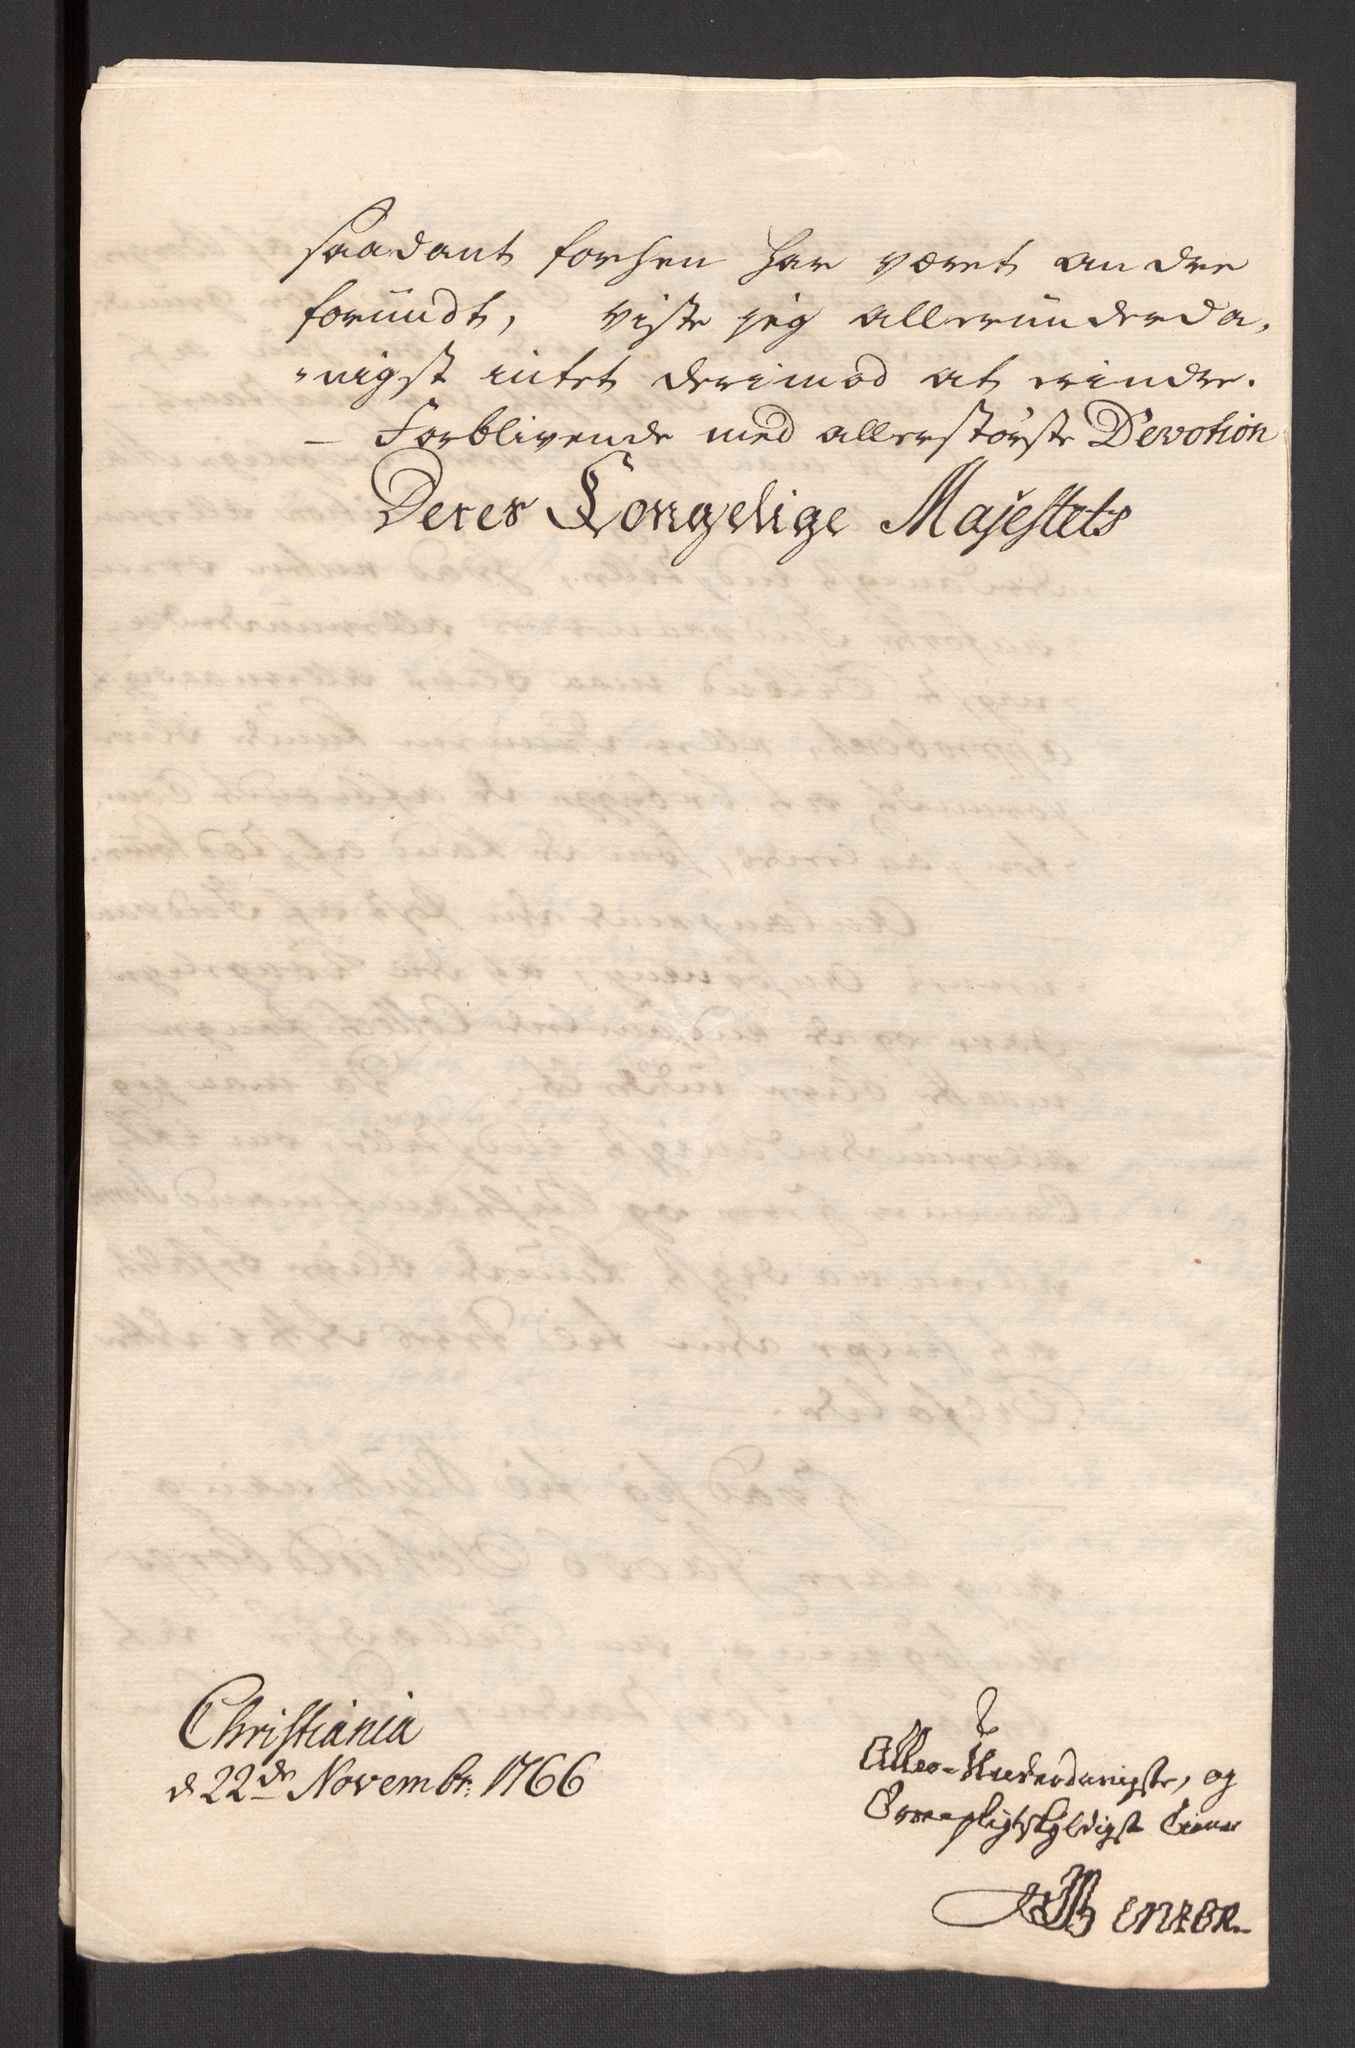 saadant forhen har været andre
forundt, viste jeg allerunderda,
-nigst intet derimod at erindre.
- Forblivende med allerstørste Devotion
Deres Kongelige Majestets
Christiania
d 22de Novembr: 1766
Aller-Underdanigste, og
Troepligtskyldigst Tiener
JBenzon